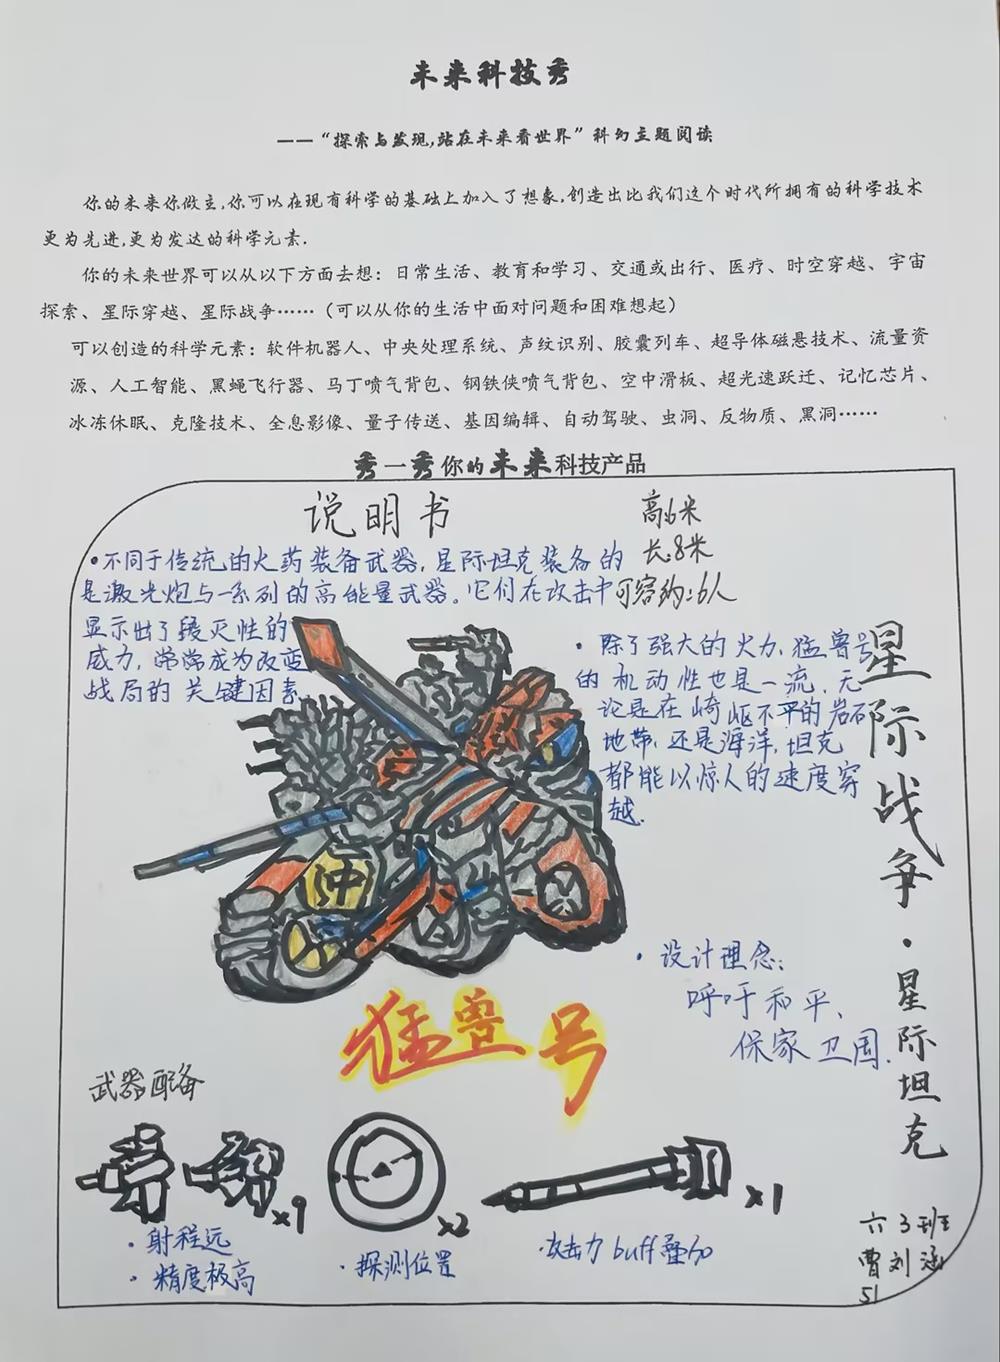 未来科技秀
——“探索与发现,站在未来看世界”科幻主题阅读
你的未来你做主,你可以在现有科学的基础上加入了想象,创造出比我们这个时代所拥有的科学技术
更为先进,更为发达的科学元素.
你的未来世界可以从以下方面去想：日常生活、教育和学习、交通或出行、医疗、时空穿越、宇宙
探索、星际穿越、星际战争……（可以从你的生活中面对问题和困难想起）
可以创造的科学元素：软件机器人、中央处理系统、声纹识别、胶囊列车、超导体磁悬技术、流量资
源、人工智能、黑蝇飞行器、马丁喷气背包、钢铁侠喷气背包、空中滑板、超光速跃迁、记忆芯片、
冰冻休眠、克隆技术、全息影像、量子传送、基因编辑、自动驾驶、虫洞、反物质、黑洞……
秀一秀你的未来科技产品
说明书
高:6米
长:8米
可容约:6人
•不同于传统的火药装备武器,星际坦克装备的
是激光炮与一系列的高能量武器。它们在攻击中
显示出了毁灭性的
威力,常常成为改变
战局的关键因素
•除了强大的火力,猛兽号
的机动性也是一流,无
论是在崎岖不平的岩石
地带,还是海洋,坦克
都能以惊人的速度穿
越.
星际战争·星际坦克
冲
•设计理念:
呼吁和平、
保家卫国.
猛兽号
武器配备
x9
x2
x1
•射程远
•精度极高
•探测位置
•攻击力buff叠加
六3班
曹刘涵
51